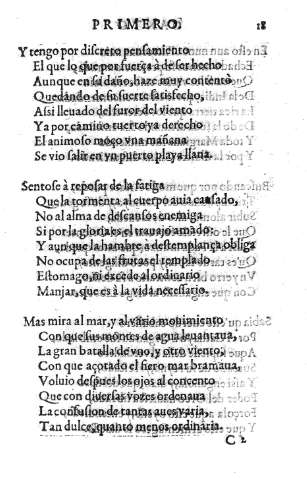 PRIMERO. 18
Y tengo por discreto pensamiento
El que lo que por fuerça à de ser hecho
Aunque en su daño, haze muy contento
Quedando de su suerte satisfecho,
Assi lleuado del furor del viento
Ya por camino tuerto ya derecho
El animoso moço vna mañana
Se vio salir en vn puerto playa llana.
Sentose à reposar de la fatiga
Que la tormenta al cuerpo auia causado,
No al alma de descansos enemiga
Si por la gloria es el trauajo amado:
Y aunque la hambre à destemplança obliga
No ocupa de las frutas el templado
Estomago, ni excede al ordinario
Manjar, que es à la vida necessario.
Mas mira al mar, y al vario mouimiento
Con que sus montes de agua leuantaua,
La gran batalla de vno, y otro viento,
Con que açotado el fiero mar bramaua,
Voluio despues los ojos al concento
Que con diuersas vozes ordenaua
La confusion de tantas aues varia,
Tan dulce, quanto menos ordinaria.
C 2